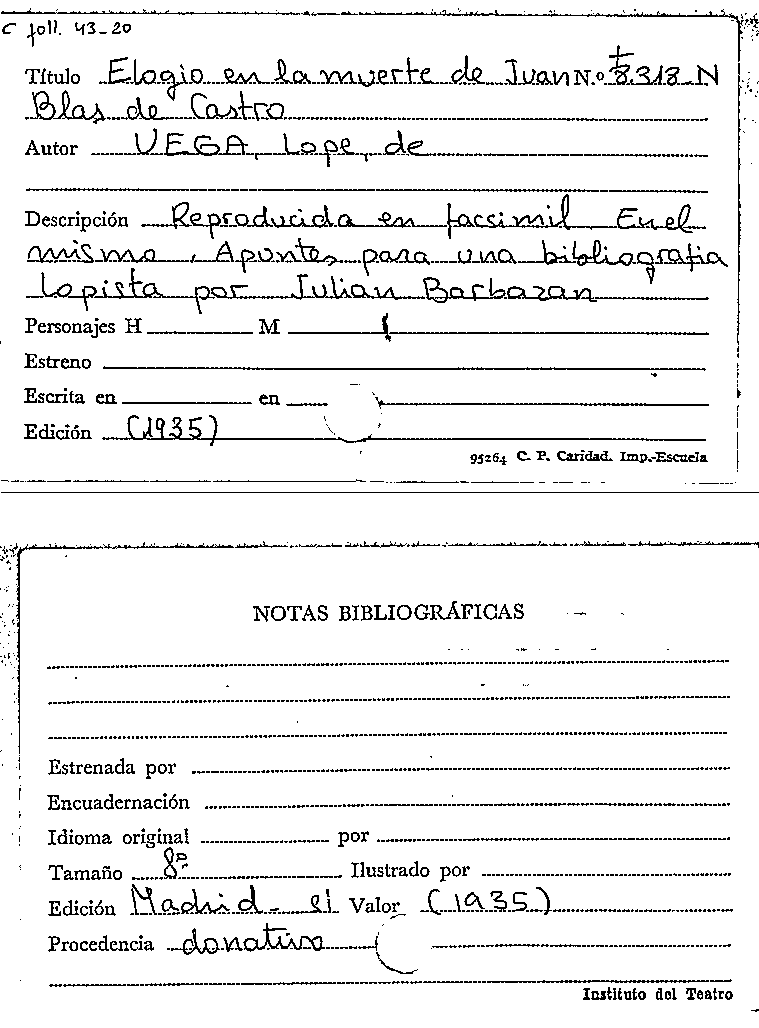 C foll. 43-20
Título Elogio en la muerte de Juan N.º 8.318-N
Blas de Castro
Autor VEGA, Lope, de
Descripción Reproducida en facsimil. En el
mismo, Apuntes para una bibliografia
Lopista por Julian Barbazan
Personajes H M
Estreno
Escrita en en
Edición (1935)
95264 C. P. Caridad. Imp.-Escuela
NOTAS BIBLIOGRÁFICAS
Estrenada por
Encuadernación
Idioma original por
Tamaño 8º Ilustrado por
Edición Madrid - Valor (1935)
Procedencia donativo
Instituto del Teatro